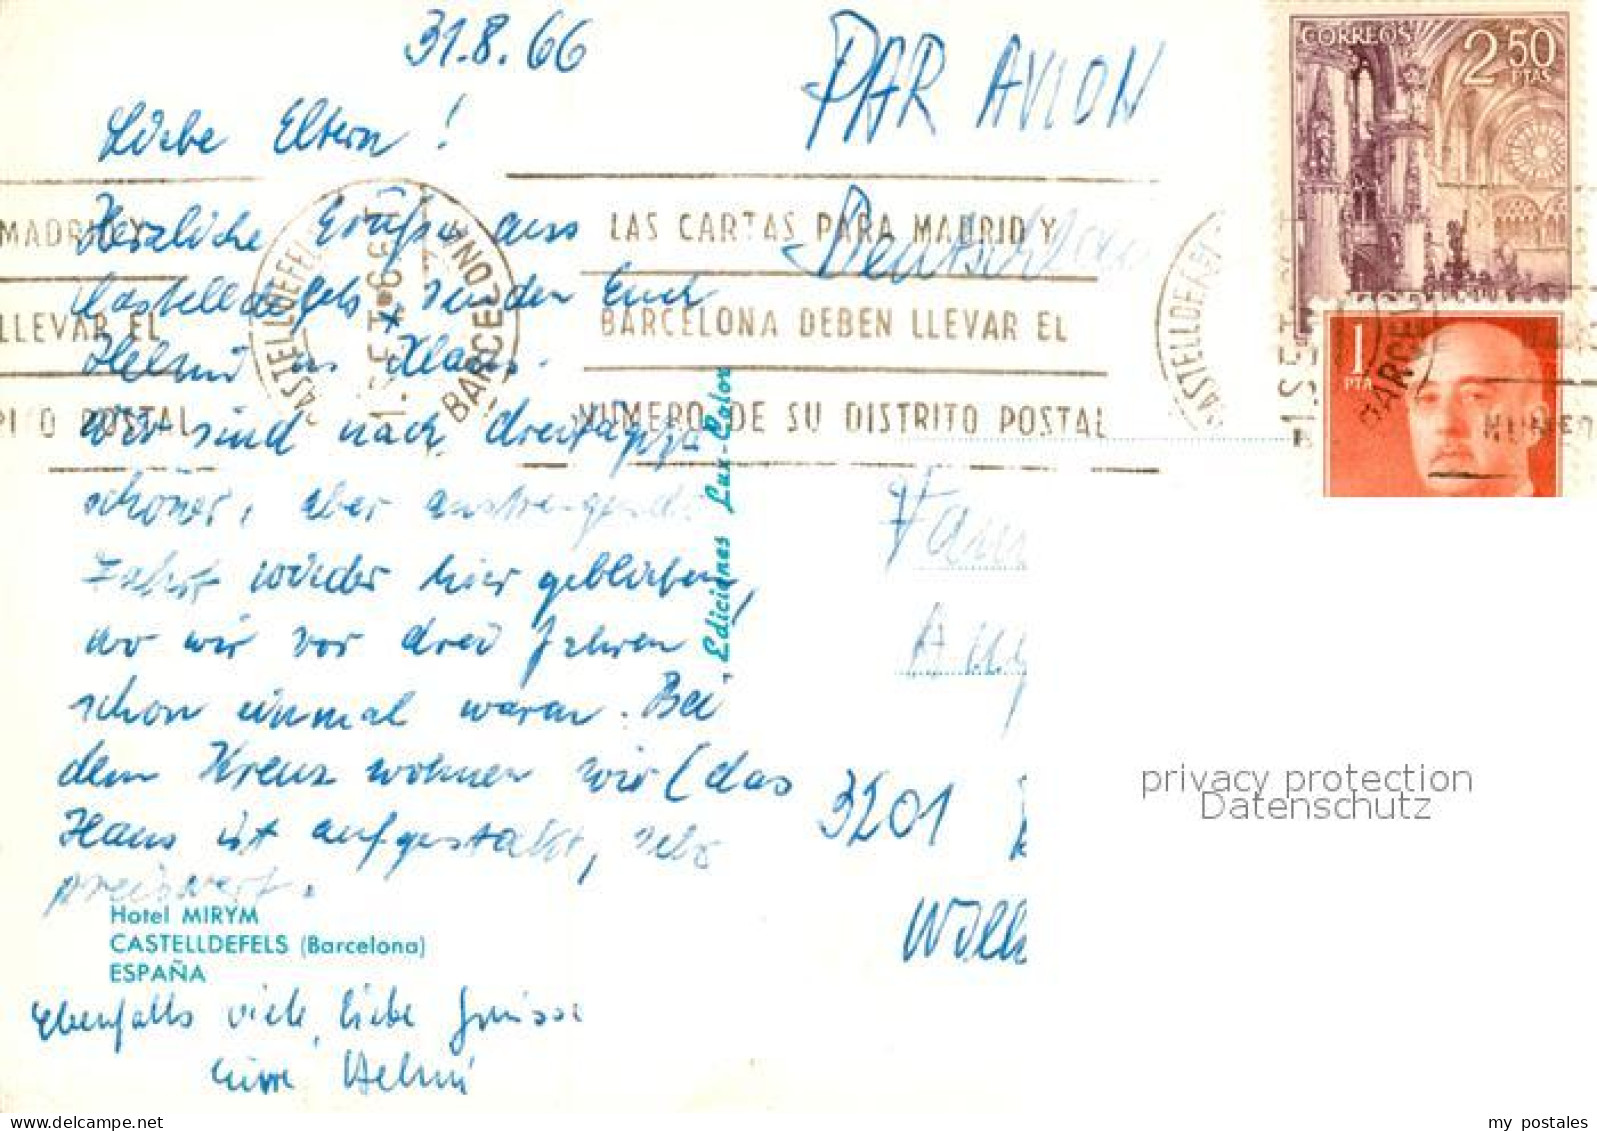 31.8.66
PAR AVION
Deutschland
CORREOS
2 50
PTAS
1
PTA
Liebe Eltern!
Herzliche Grüße aus
Castelldefels senden Euch
Helmi u. Klaus.
Wir sind nach dreitägiger
schöner, aber anstrengender
Fahrt wieder hier geblieben,
wo wir vor drei Jahren
schon einmal waren. Bei
dem Kreuz wohnen wir (das
Haus ist aufgestockt, sehr
preiswert.
Hotel MIRYM
CASTELLDEFELS (Barcelona)
ESPAÑA
Ebenfalls viele liebe Grüsse
Eure Helmi
MADRID Y
LLEVAR EL
POSTAL
CASTELLDEFELS
BARCELONA
LAS CARTAS PARA MADRID Y
BARCELONA DEBEN LLEVAR EL
NUMERO DE SU DISTRITO POSTAL
CASTELLDEFELS
BARCEL
NUMER
Ediciones Lux-Color
Fam
3201
privacy protection
Datenschutz
my postales